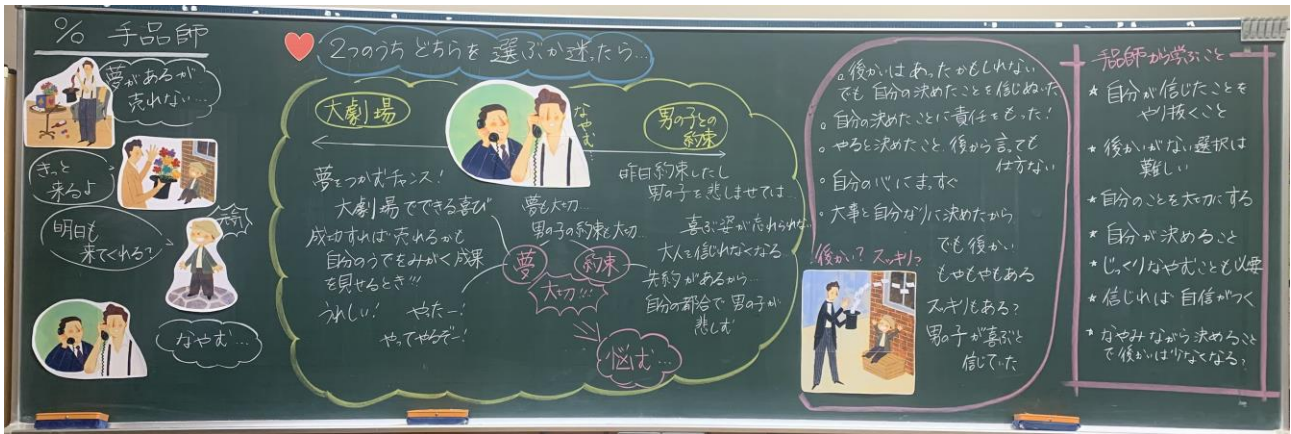 % 手品師
夢があるが
売れない…
きっと
来るよ
明日も
来てくれる?
元気
なやむ…
2つのうち どちらを 選ぶか迷ったら…
大劇場
なやむ…
男の子との
約束
夢をつかむチャンス!
大劇場でできる喜び
成功すれば売れるかも
自分のうでをみがく成果
を見せるとき!!!
うれしい! やたー!
やってやるぞー!
夢も大切…
男の子の約束も大切…
夢 約束
大切!!!
悩む…
昨日約束したし
男の子を悲しませては…
喜ぶ姿が忘れられない
大人を信じれなくなる
先約があるから…
自分の都合で男の子が
悲しむ
。後かいはあったかもしれない
でも 自分の決めたことを信じぬいた
。自分の決めたことに責任をもった!
。やると決めたこと、後から言っても
仕方ない
。自分の心にまっすぐ
。大事と自分なりに決めたから
後かい? スッキリ?
でも後かい
もやもやもある
スッキリもある?
男の子が喜ぶと
信じていた
手品師から学ぶこと
* 自分が信じたことを
やり抜くこと
* 後かいがない選択は
難しい
* 自分のことを大切にする
* 自分が決めること
* じっくりなやむことも必要
* 信じれば自信がつく
* なやみながら決めること
で後かいは少なくなる?